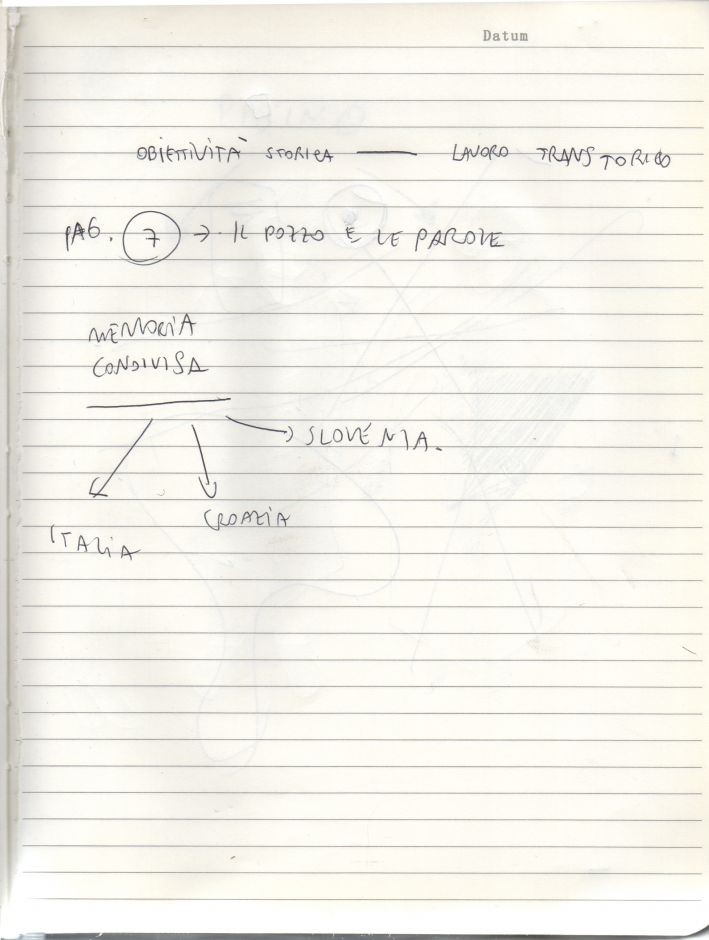 Datum
OBIETTIVITÀ STORICA — LAVORO TRANSTORICO
PAG. 7 → IL POZZO E LE PAROLE
MEMORIA
CONDIVISA
→ SLOVENIA.
CROAZIA
ITALIA